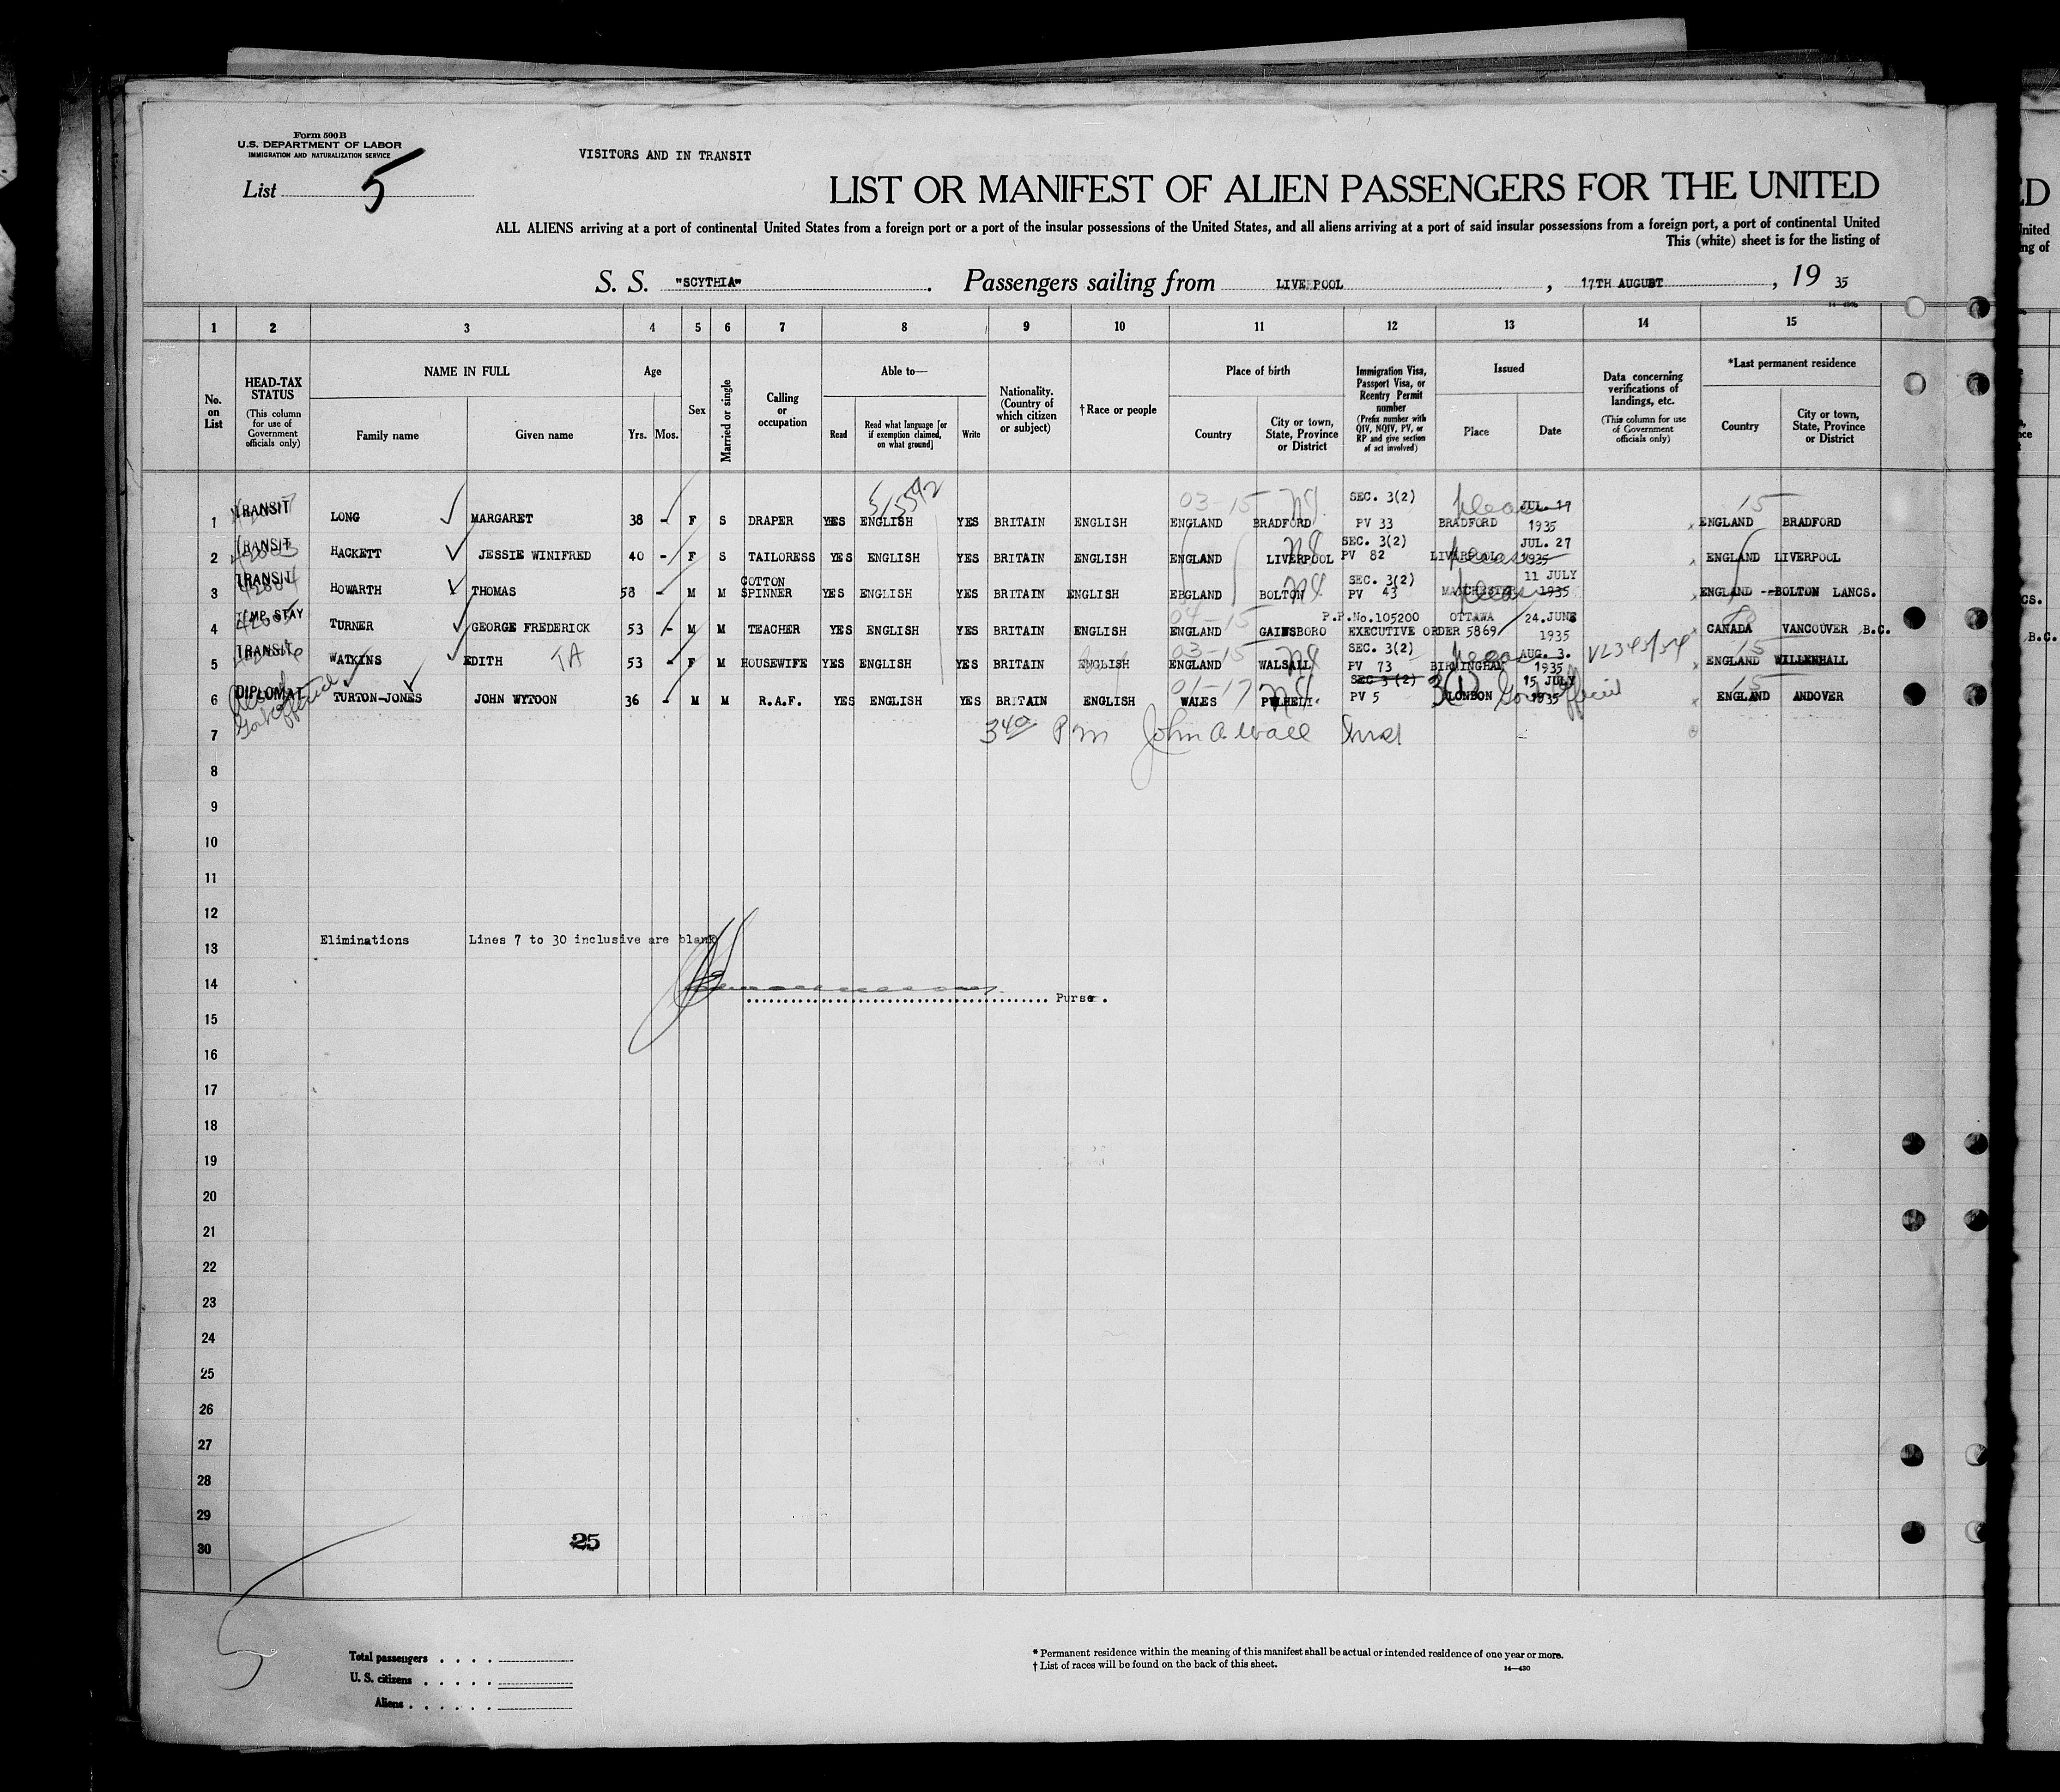 Form 500 B
U.S. DEPARTMENT OF LABOR
IMMIGRATION AND NATURALIZATION SERVICE
VISITORS AND IN TRANSIT
List 5
LIST OR MANIFEST OF ALIEN PASSENGERS FOR THE UNITED
ALL ALIENS arriving at a port of continental United States from a foreign port or a port of the insular possessions of the United States, and all aliens arriving at a port of said insular possessions from a foreign port, a port of continental United
This (white) sheet is for the listing of
S. S. "SCYTHIA". Passengers sailing from LIVERPOOL, 17TH AUGUST, 19 35
1 2 3 4 5 6 7 8 9 10 11 12 13 14 15
No. on List
HEAD-TAX STATUS (This column for use of Government officials only)
NAME IN FULL
Family name
Given name
Age
Yrs. Mos.
Sex
Married or single
Calling or occupation
Able to—
Read
Read what language [or if exemption claimed, on what ground]
Write
Nationality. (Country of which citizen or subject)
†Race or people
Place of birth
Country
City or town, State, Province or District
Immigration Visa, Passport Visa, or Reentry Permit number (Prefix number with QIV, NQIV, PV, or RP and give section of act involved)
Issued
Place
Date
Data concerning verifications of landings, etc. (This column for use of Government officials only)
*Last permanent residence
Country
City or town, State, Province or District
1 TRANSIT LONG MARGARET 38 - F S DRAPER YES ENGLISH YES BRITAIN ENGLISH 03-15 ENGLAND BRADFORD SEC. 3(2) PV 33 BRADFORD JUL. 1935 15 ENGLAND BRADFORD
2 TRANSIT HACKETT JESSIE WINIFRED 40 - F S TAILORESS YES ENGLISH YES BRITAIN ENGLISH ENGLAND LIVERPOOL SEC. 3(2) PV 82 LIVERPOOL JUL. 27 1935 ENGLAND LIVERPOOL
3 TRANSIT HOWARTH THOMAS 58 - M M COTTON SPINNER YES ENGLISH YES BRITAIN ENGLISH EBGLAND BOLTON SEC. 3(2) PV 43 MANCHESTER 11 JULY 1935 ENGLAND --BOLTON LANCS.
4 TEMP. STAY TURNER GEORGE FREDERICK 53 - M M TEACHER YES ENGLISH YES BRITAIN ENGLISH 04-15 ENGLAND GAINSBORO P.P.No.105200 EXECUTIVE ORDER 5869 OTTAWA 24.JUNE 1935 CANADA VANCOUVER B.C.
5 TRANSIT WATKINS EDITH TA 53 - F M HOUSEWIFE YES ENGLISH YES BRITAIN ENGLISH 03-15 ENGLAND WALSALL SEC. 3(2) PV 73 BIRMINGHAM AUG. 3. 1935 15 ENGLAND WILLENHALL
6 DIPLOMAT TURTON-JONES JOHN WYTOON 36 - M M R.A.F. YES ENGLISH YES BRITAIN ENGLISH 01-17 WALES PWLHELI SEC 3 (2) PV 5 3(1) LONDON 15 JULY 1935 Govt Official 15 ENGLAND ANDOVER
7 340 Pm John A. Wall
8
9
10
11
12
13 Eliminations Lines 7 to 30 inclusive are blank
14 Purser.
15
16
17
18
19
20
21
22
23
24
25
26
27
28
29
30
25
Total passengers
U. S. citizens
Aliens
* Permanent residence within the meaning of this manifest shall be actual or intended residence of one year or more.
† List of races will be found on the back of this sheet.
14—430